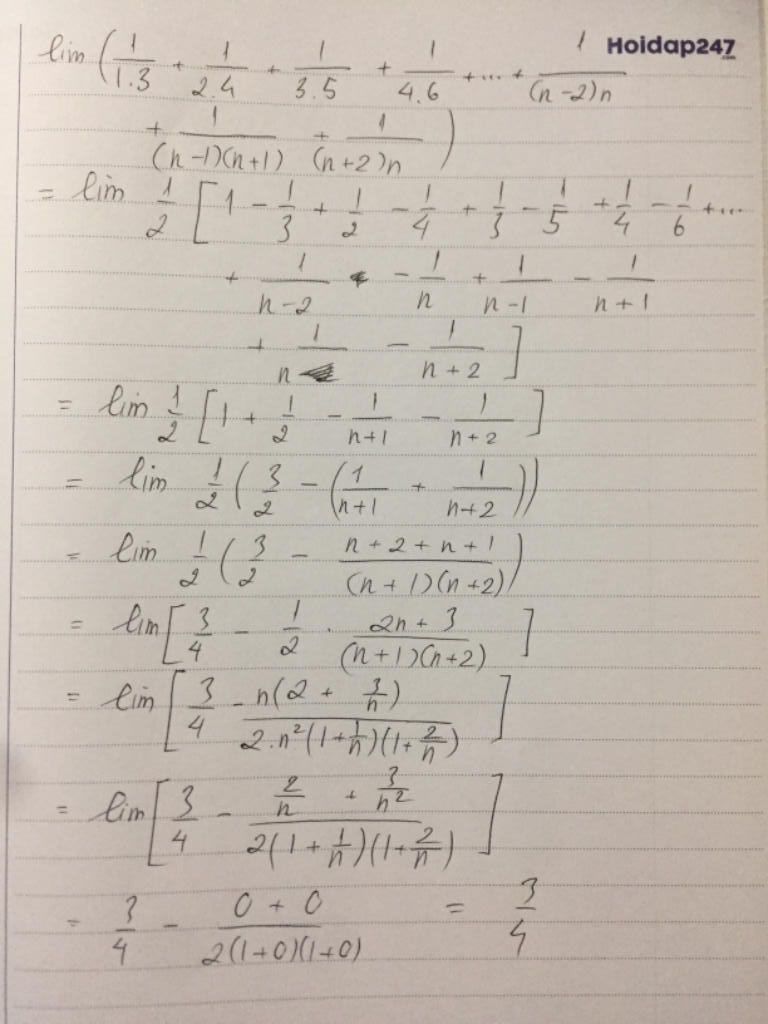 Hoidap247.com
lim (1/1.3 + 1/2.4 + 1/3.5 + 1/4.6 + ... + 1/(n-2)n
+ 1/(n-1)(n+1) + 1/(n+2)n)
= lim 1/2 [1 - 1/3 + 1/2 - 1/4 + 1/3 - 1/5 + 1/4 - 1/6 + ...
+ 1/n-2 - 1/n + 1/n-1 - 1/n+1
+ 1/n - 1/n+2]
= lim 1/2 [1 + 1/2 - 1/n+1 - 1/n+2]
= lim 1/2 (3/2 - (1/n+1 + 1/n+2))
= lim 1/2 (3/2 - n+2+n+1/(n+1)(n+2))
= lim [3/4 - 1/2 . 2n+3/(n+1)(n+2)]
= lim [3/4 - n(2 + 3/n)/2.n²(1+1/n)(1+2/n)]
= lim [3/4 - 2/n + 3/n²/2(1+1/n)(1+2/n)]
= 3/4 - 0+0/2(1+0)(1+0) = 3/4